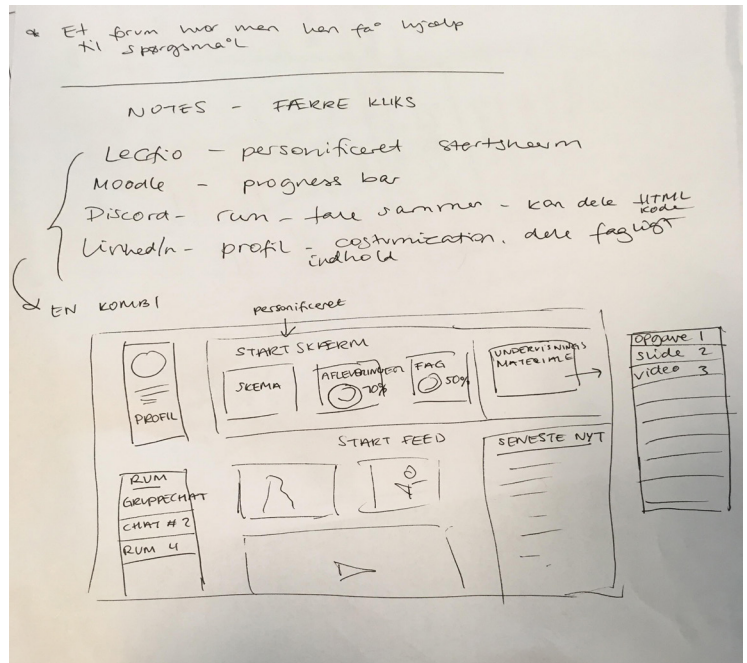 * Et forum hvor man kan få hjælp
til spørgsmål
NOTES - FÆRRE KLIKS
Lectio - personificeret startskærm
Moodle - progress bar
Discord - rum - tale sammen - kan dele HTML
kode
LinkedIn - profil - costumization. dele fagligt
indhold
EN KOMBI
personificeret
START SKÆRM
PROFIL
SKEMA
AFLEVERINGER
70%
FAG
50%
UNDERVISNINGS
MATERIALE
opgave 1
slide 2
video 3
START FEED
SENESTE NYT
RUM
GRUPPECHAT
CHAT # 2
RUM 4